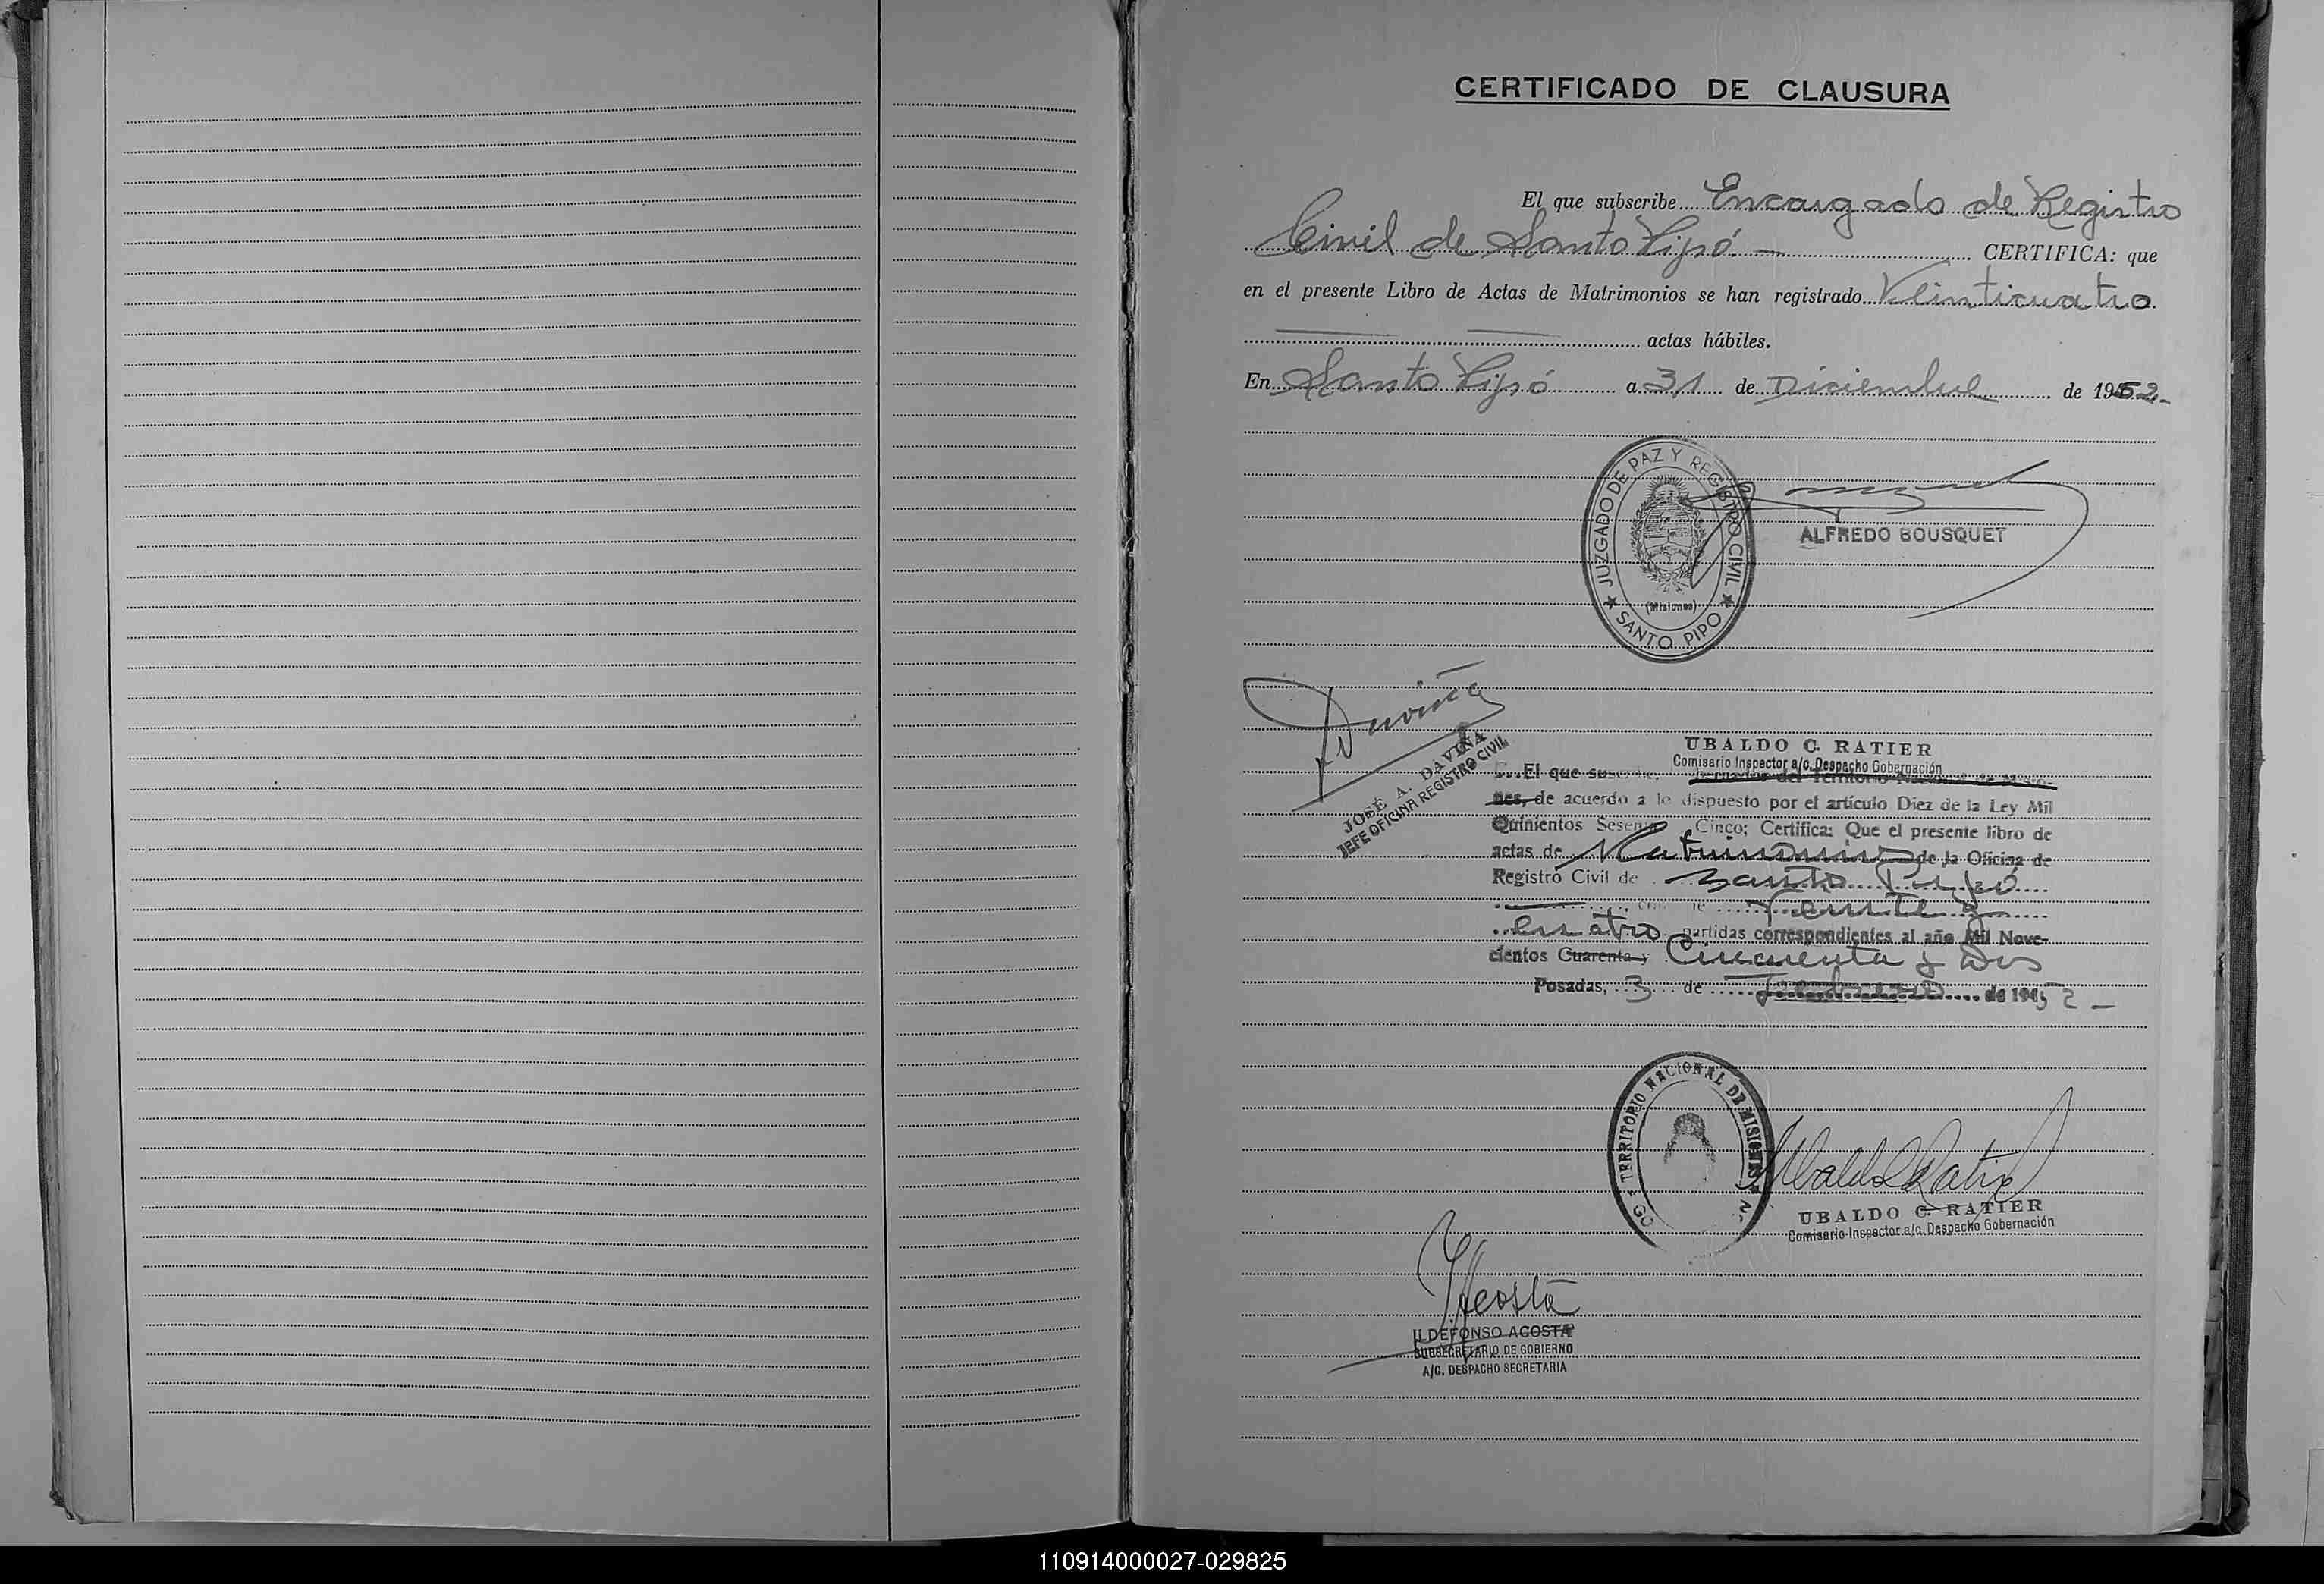 CERTIFICADO DE CLAUSURA
El que subscribe Encargado de Registro
Civil de Santo Pipó.— CERTIFICA: que
en el presente Libro de Actas de Matrimonios se han registrado Veinticuatro
actas hábiles.
En Santo Pipó a 31 de Diciembre de 1952.-
JUZGADO DE PAZ Y REGISTRO CIVIL
(Misiones)
SANTO PIPO
ALFREDO BOUSQUET
Daviña
JOSÉ A. DAVIÑA
JEFE OFICINA REGISTRO CIVIL
UBALDO C. RATIER
Comisario Inspector a/c. Despacho Gobernación
El que suscribe, Gobernador del Territorio Nacional de Misio-
nes, de acuerdo a lo dispuesto por el artículo Diez de la Ley Mil
Quinientos Sesenta y Cinco; Certifica: Que el presente libro de
actas de Matrimonios de la Oficina de
Registro Civil de Santo Pipó
Veinte y
cuatro partidas correspondientes al año Mil Nove-
cientos Cuarenta y Cincuenta y Dos
Posadas, 3 de de 1952 —
TERRITORIO NACIONAL DE MISIONES
Ubaldo C Ratier
UBALDO C. RATIER
Comisario Inspector a/c. Despacho Gobernación
IAcosta
ILDEFONSO ACOSTA
SUBSECRETARIO DE GOBIERNO
A/C. DESPACHO SECRETARIA
110914000027-029825